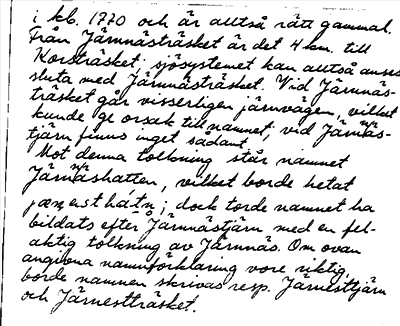 i kb. 1770 och är alltså rätt gammal.
Från Järnnästräsket är det 4 km. till
Korsträsket; sjösystemet kan alltså anses
sluta med Järnnästräsket. Vid Järnnäs-
träsket går visserligen järnvägen, vilket
kunde ge orsak till namnet; vid Järnnäs-
tjärn finns inget sådant.
Mot denna tolkning står namnet
Järnnäshatten, vilket borde hetat
jæṇesthátṇ; dock torde namnet ha
bildats efter Järnnästjärn med en fel-
aktig tolkning av Järnnäs. Om ovan
angivna namnförklaring vore riktig,
borde namnen skrivas resp. Järnesttjärn
och Järnestträsket.